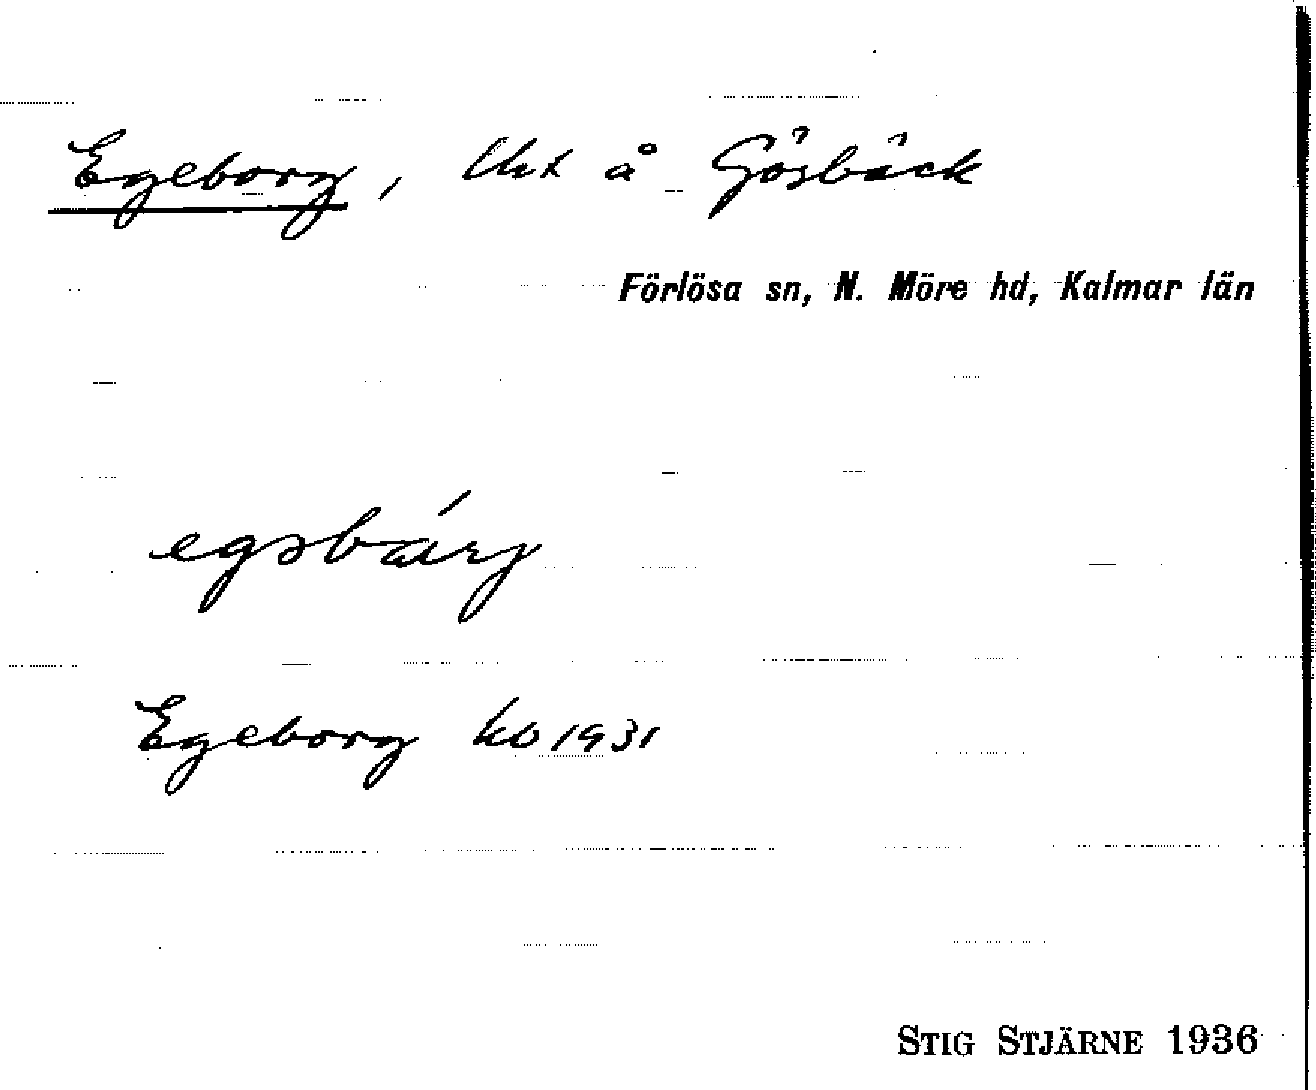 Egeborg, lht å Gösbäck
Förlösa sn, N. Möre hd, Kalmar län
Egeborg kb 1931
STIG STJÄRNE 1936